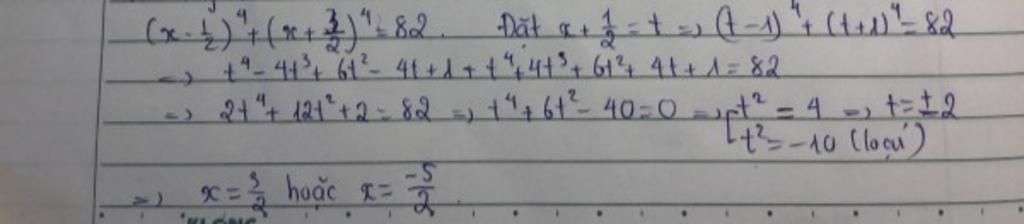 (x - 1/2)^4 + (x + 3/2)^4 = 82. Đặt x + 1/2 = t => (t - 1)^4 + (t + 1)^4 = 82
=> t^4 - 4t^3 + 6t^2 - 4t + 1 + t^4 + 4t^3 + 6t^2 + 4t + 1 = 82
=> 2t^4 + 12t^2 + 2 = 82 => t^4 + 6t^2 - 40 = 0 => [t^2 = 4 => t = ± 2
[t^2 = -10 (loại)
=> x = 3/2 hoặc x = -5/2.